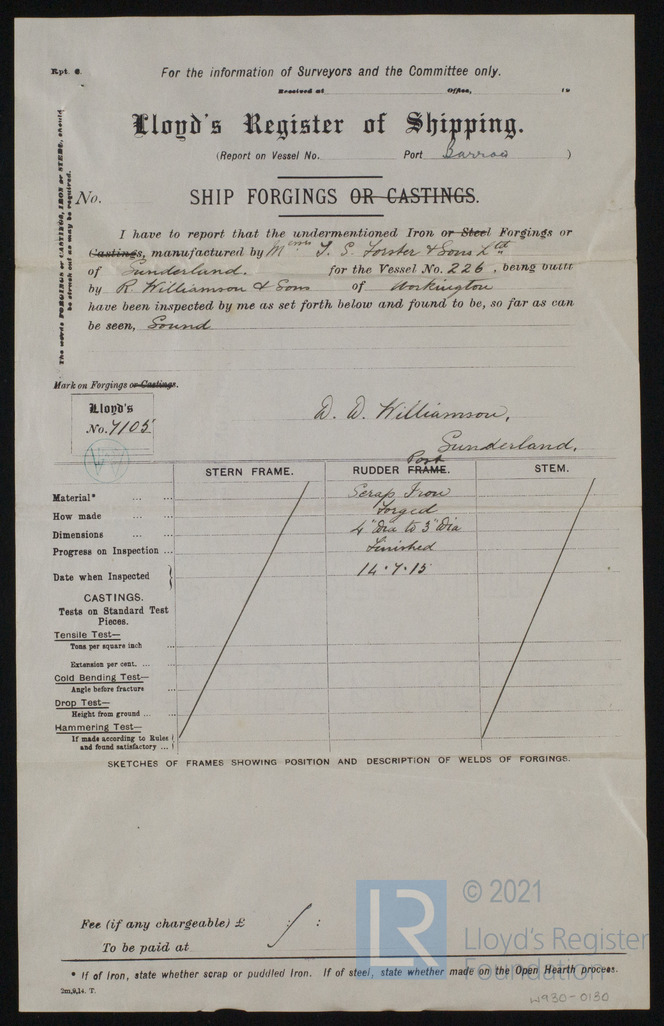 Rpt. 6.
For the information of Surveyors and the Committee only.
Received at Office, 19
Lloyd's Register of Shipping.
(Report on Vessel No. Port Barrow )
No. SHIP FORGINGS OR CASTINGS.
The words FORGINGS or CASTINGS, IRON or STEEL, should
be struck out as may be required.
I have to report that the undermentioned Iron or Steel Forgings or
Castings, manufactured by Messrs T. S. Forster & Sons Ltd
of Sunderland. for the Vessel No. 226, being built
by R. Williamson & Sons of Workington
have been inspected by me as set forth below and found to be, so far as can
be seen, Sound
Mark on Forgings or Castings.
Lloyd's
No. 7105
D. D. Williamson,
Sunderland.
STERN FRAME. RUDDER FRAME. Post STEM.
Material* ... ... Scrap Iron
How made ... ... Forged
Dimensions ... ... 4" Dia to 3" Dia
Progress on Inspection ... Finished
Date when Inspected 14.7.15
CASTINGS.
Tests on Standard Test
Pieces.
Tensile Test—
Tons per square inch ...
Extension per cent. ... ...
Cold Bending Test—
Angle before fracture ...
Drop Test—
Height from ground ... ...
Hammering Test—
If made according to Rules
and found satisfactory ...
SKETCHES OF FRAMES SHOWING POSITION AND DESCRIPTION OF WELDS OF FORGINGS.
Fee (if any chargeable) £ : :
To be paid at
* If of Iron, state whether scrap or puddled Iron. If of steel, state whether made on the Open Hearth process.
2m,9,14. T.
LR
© 2021
Lloyd's Register
Foundation
W930-0130